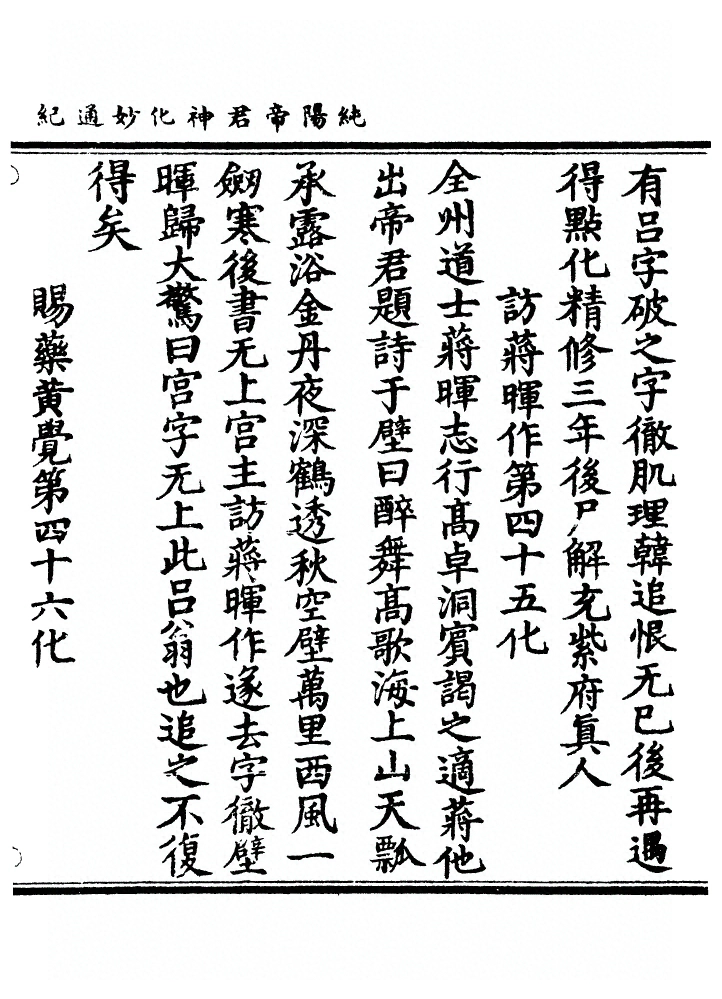 純陽帝君神化妙通紀
有吕字破之字徹肌理韓追恨无已後再遇
得點化精修三年後尸解充紫府真人
訪蔣暉作第四十五化
全州道士蔣暉志行髙卓洞賓謁之適蔣他
出帝君題詩于壁曰醉舞髙歌海上山天瓢
承露浴金丹夜深鶴透秋空壁萬里西風一
劒寒後書无上宫主訪蔣暉作遂去字徹壁
暉歸大驚曰宫字无上此吕翁也追之不復
得矣
賜藥黄覺第四十六化